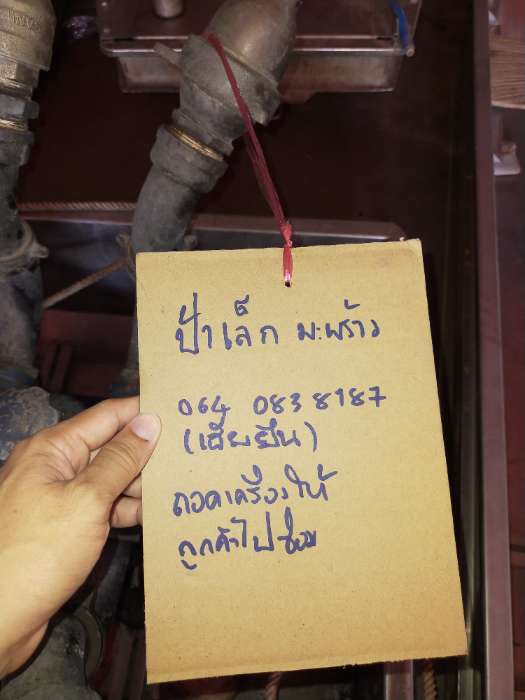 ป้าเล็ก มะพร้าว
064 083 8187
(เสียยืน)
ถอดเครื่องให้
ลูกค้าไปซ่อม